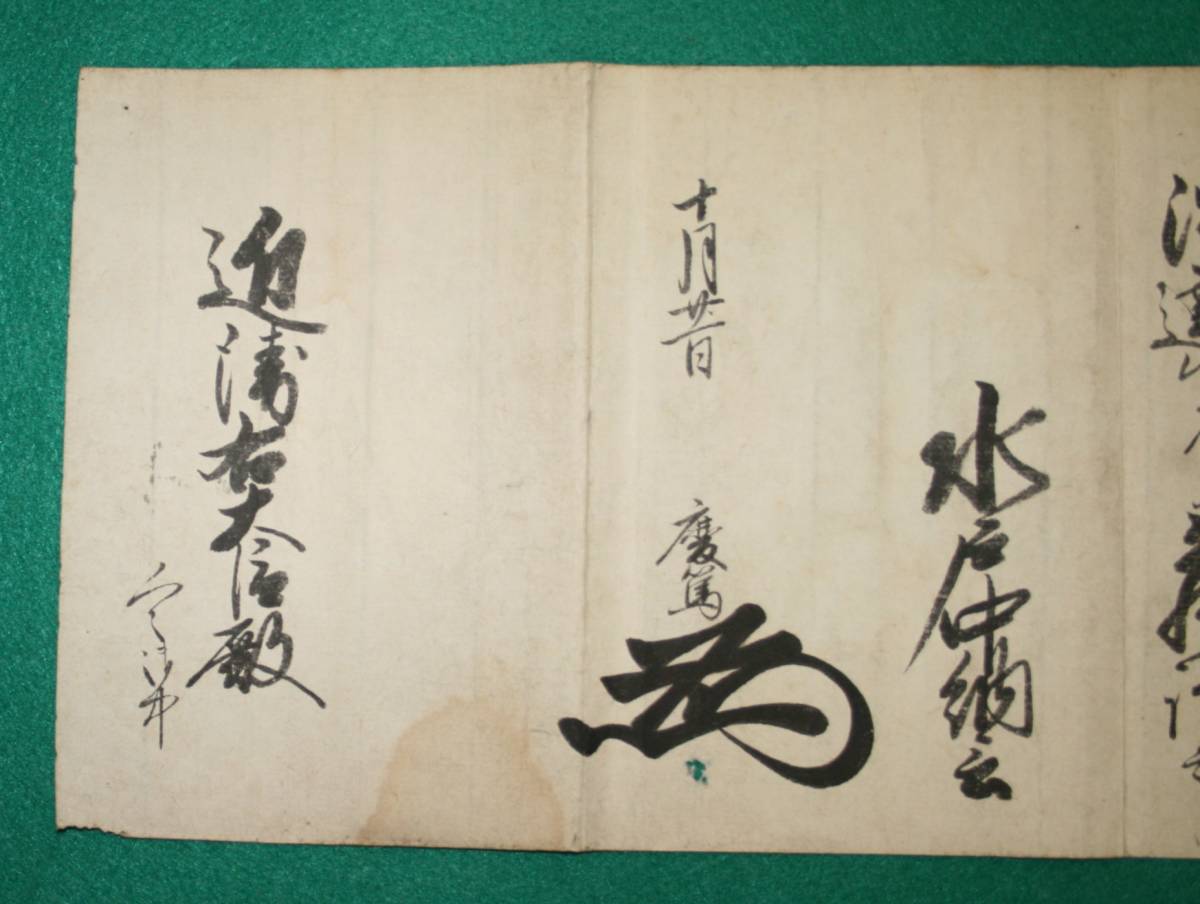 水戸中納言
十月廿一日 慶篤
近衛右大臣殿
人々御中